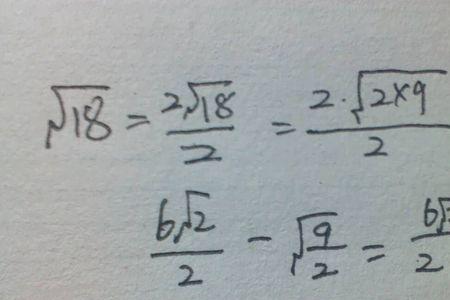 √18 = 2√18/2 = 2·√2×9/2
6√2/2 - √9/2 = 6√/2